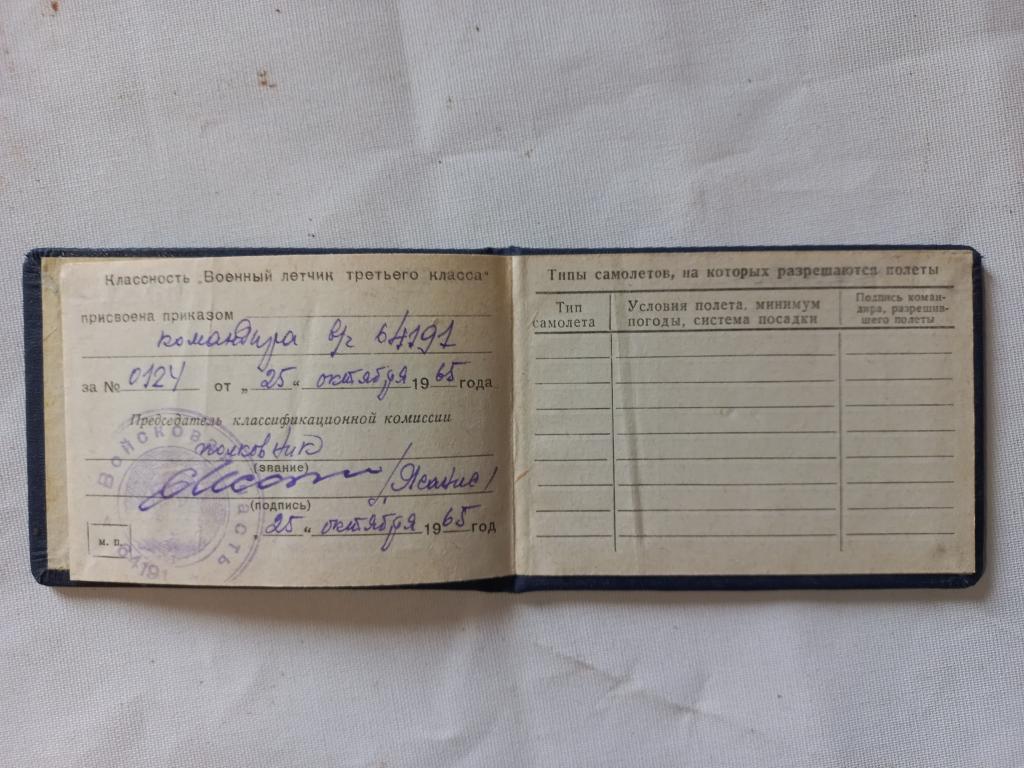 Классность „Военный летчик третьего класса“
присвоена приказом
командира в/ч 64191
за № 0124 от „25“ октября 1965 года.
Председатель классификационной комиссии
полковник
(звание)
(подпись)
„25“ октября 1965 год
м. п.
Войсковая часть
64191
Типы самолетов, на которых разрешаются полеты
Тип
самолета
Условия полета, минимум
погоды, система посадки
Подпись коман-
дира, разрешив-
шего полеты